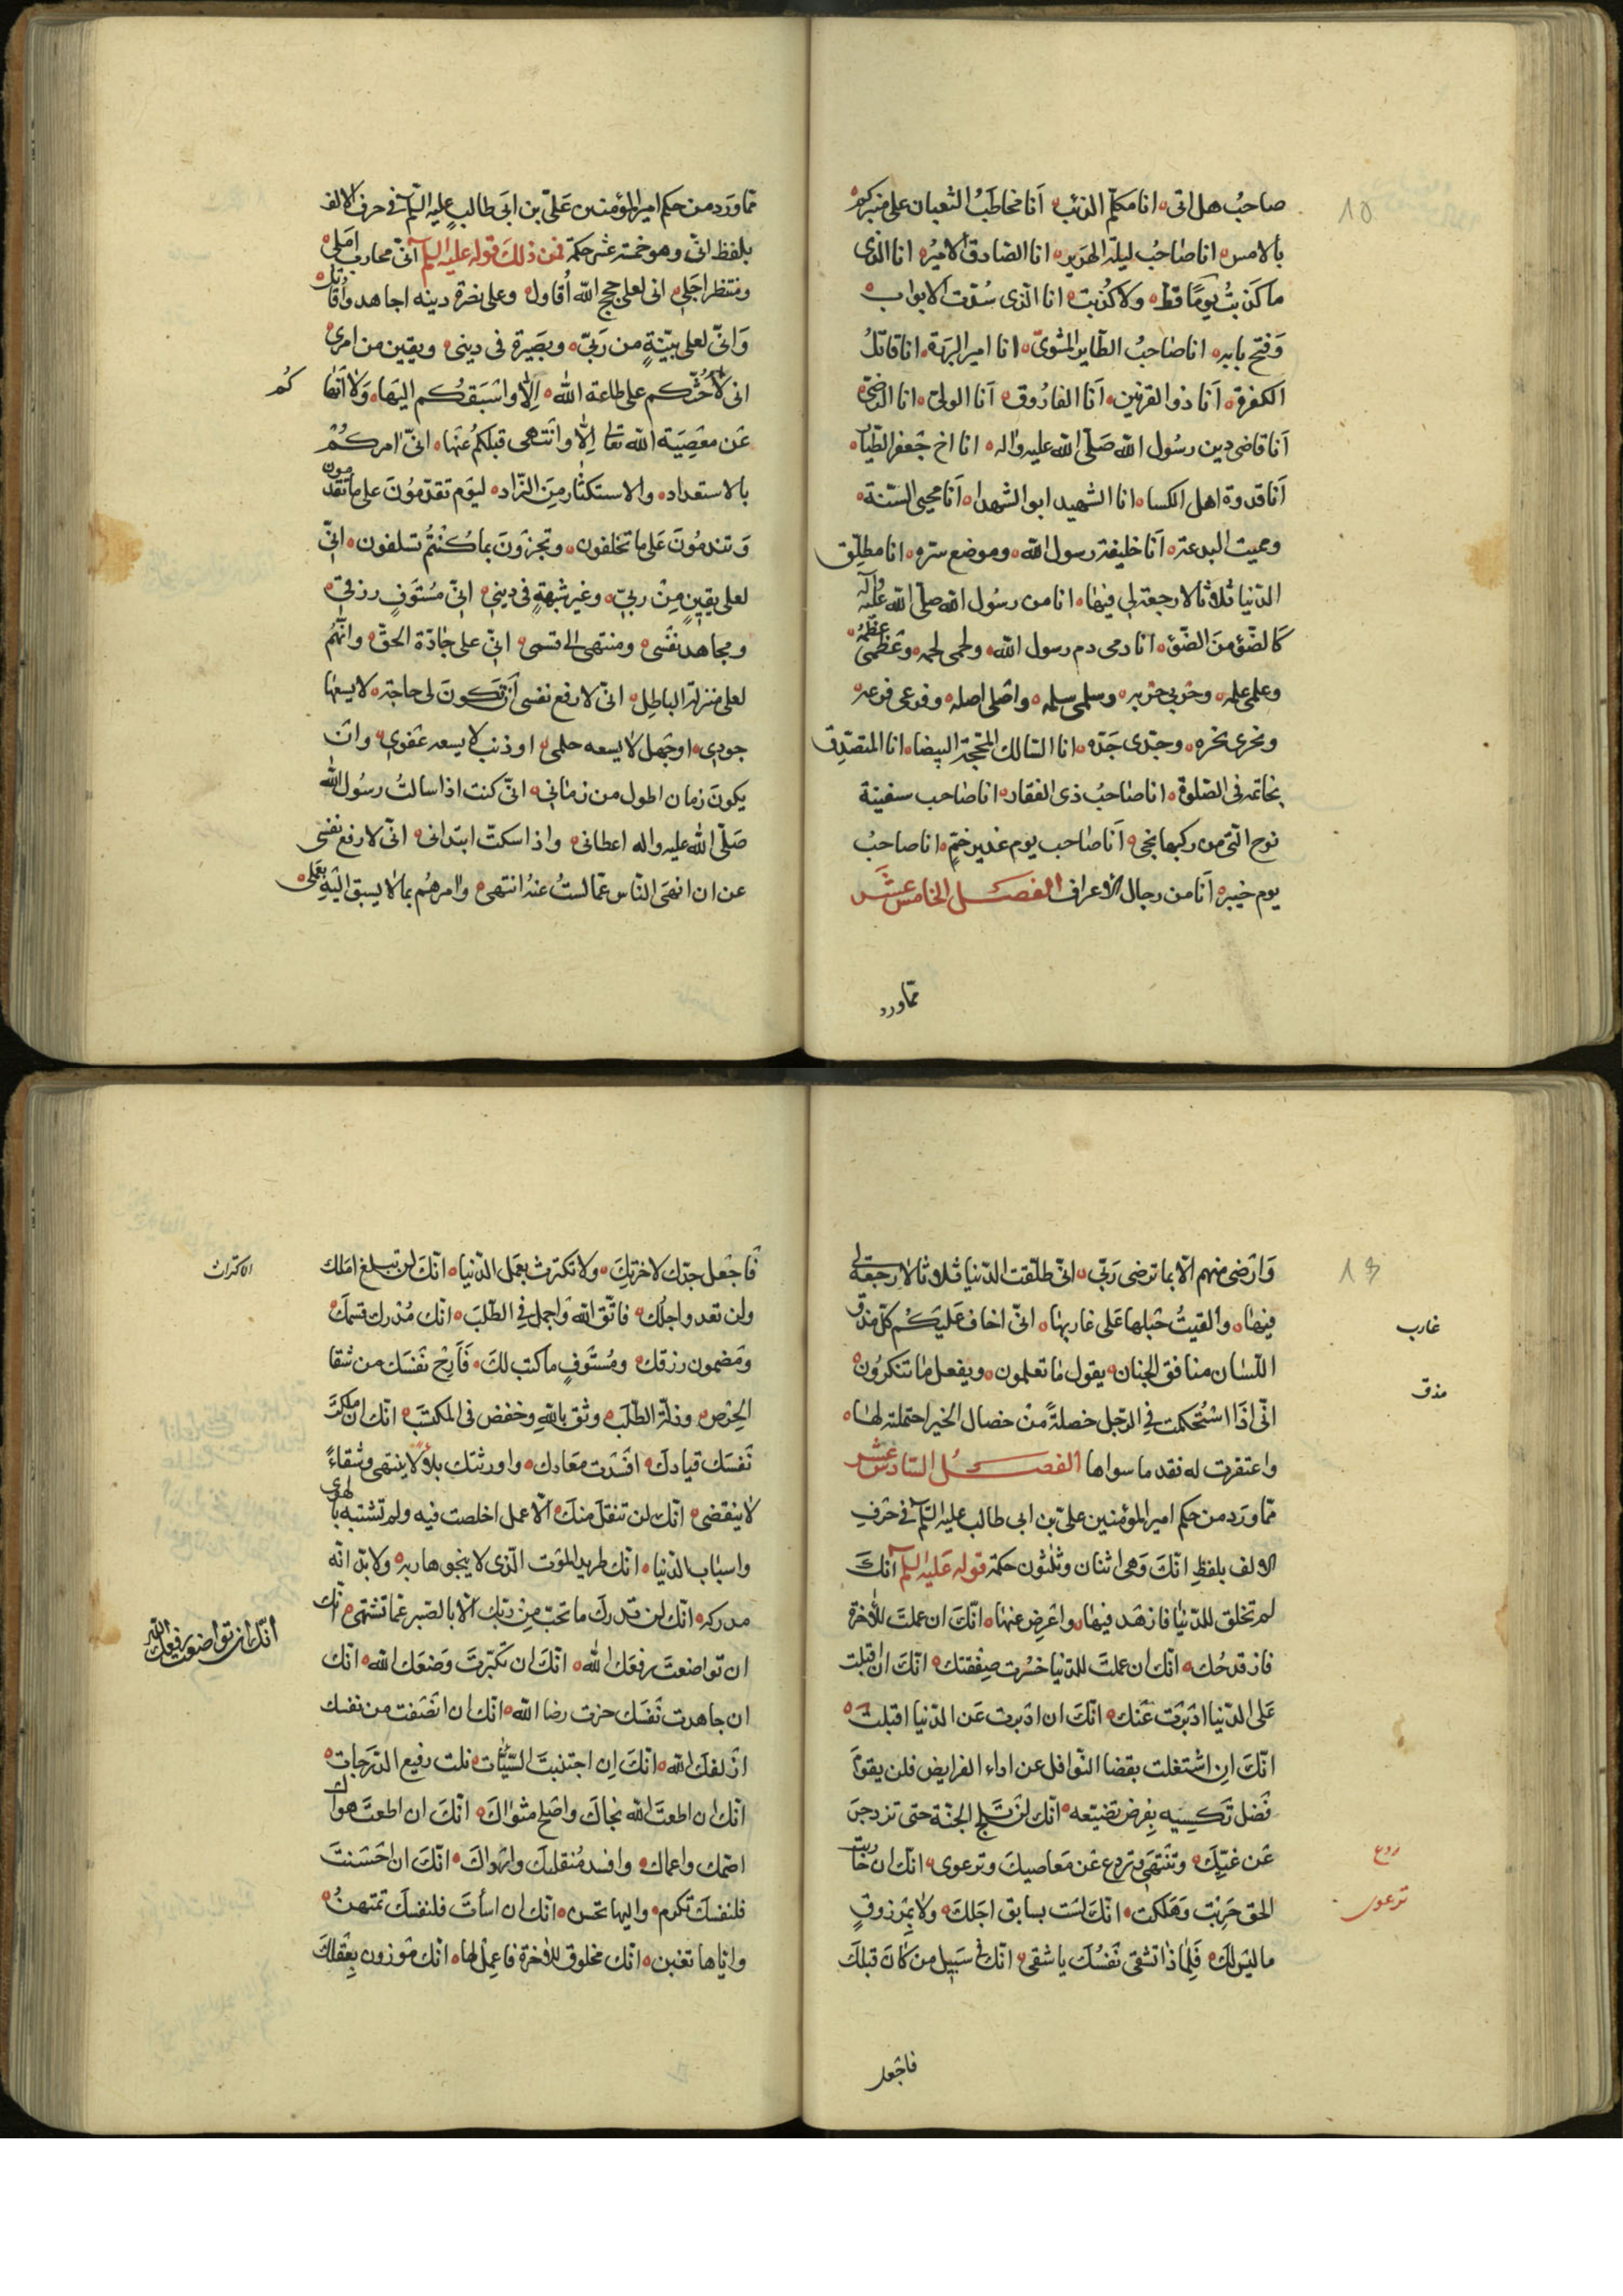 صاحبُ هل اتى انا مكلّم الذئب اَنا مخاطَبُ الثعبان على منبركم
بالامس انا صاحبُ ليلة الهَرير انا الصّادق الاميرُ انا الذى
ما كَذَبتُ يومًا قط ولا كُذبت انا الّذى سُدّت الابواب
وَفتح بابه انا صاحبُ الطّاير المشوىّ انا امير البررة انا قاتلُ
الكفرة اَنا ذو القرنين اَنا الفارُوق اَنا الولىّ انا الرّضىّ
اَنا قاضى دين رسُول الله صَلّى الله عليه واله انا اخ جَعفر الطّيّار
اَنا قدوة اهل الكسا انا الشهيد ابو الشهدا اَنا محيى السّنّة
ومميت البدعة اَنا خليفة رسول الله وموضع سرّه انا مطلّق
الدّنيا ثلاثا لا رجعة لى فيها انا من رسُول الله صلّى الله عليه واله
كالضّؤ منَ الضّؤ انا دمى دم رسول الله ولحمى لحمه وعَظمى عظمُه
وعلمى علمه وحَربى حَربه وسلمى سلمه واصَلى اصله وفرعى فرعه
ونحرى نحره وجدّى جَدّه انا السّالك المحجّة البيضا انا المتصدّق
بخاتمه فى الصّلوة انا صاحبُ ذى الفقار انا صاحب سفينة
نوح الّتى من ركبها نجى اَنا صاحب يوم غدير خمّ انا صاحبُ
يوم خيبر اَنا من رجال الاعراف الفصل الخامس عشر
مما ورد
ممّا ورَد من حكم امير المؤمنين عَلىّ بن ابى طالب عليه السّلم فى حرف الالف
بلفظ انّى وهو خمسة عشر حكمة فمن ذلكَ قوله عليه السلم انّى محارب امَلى
ومنتظر اجَلى انى لعلى حجج الله اُقاول وعلى نصرة دينه اجاهد واُقاتل
وَانّى لعلى بيّنةٍ من رَبّى وبصَيرة فى دينى ويقين من امرى
انى لا اَحُثّكم على طاعة الله اِلّا واسَبقكُم اليَها وَلا اَنهاكُم
عَن معَصِيَة الله تعالى اِلّا وانَتهى قبلكمُ عنَها انّى امركُمْ
بالاستعداد والاستكثار مِنَ الزّاد ليَوم تقدَمُونَ على ما تقدمون
وَتندمُونَ عَلى ما تخلفون وتجزَونَ بما كُنتُم تسلفون انّى
لعلى يقينٍ مِنْ ربىّ وغير شبهةٍ فى دينى انّى مُستَوفٍ رزقى
ومجاهد نفَسى ومنتهى الى قسمى انّى على جادّة الحقّ وانّهُم
لعلى منزلة الباطِل انّى لارفع نفسى اَن تكونَ لى حاجة لا يسعها
جودى او جَهل لا يسعه حلمى او ذنب لا يسعه عَفوى وان
يكونَ زمان اطول من زمانى انّى كنت اذا سالتُ رسُول الله
صَلّى الله عليه واله اعطانى واذا سكتّ ابتدانى انّى لارفع نفسى
عن ان انهىَ النّاس عمّا لستُ عنهُ انتهى وامرهُم بما لا يسبق اليَهِ بعَملى
وَارضى منهم الّا بما ترضى رَبّى انّى طلّقت الدّنيا ثلاثا لا رجعة لى
فيها والقيتُ حَبلها عَلى غاربها انّى اخاف عَليَكُم كلّ مذق
اللّسان منافق الجنان يقول ما تعلمون ويفعل ما تنكرُون
انّى اذَا استُحكمت فى الرّجل خصلةً منْ خصال الخير احتملته لها
واغتفرت له فقد ما سواها الفصل السّادس عشر
ممّا ورَد من حكم امير المؤمنين علىّ بن ابى طالب عليه السّلم فى حَرفِ
الالف بلفظِ انكَ وَهى اثنان وثلثون حكمة قوله عَليه السلم انكَ
لم تخلق للدّنيا فازهَد فيها واعَرِض عنها انّكَ ان عملتَ للاخرة
فاز قدحُك انّك ان عملتَ للدّنيا خسَرت صفَقتك انّكَ ان اقبلت
عَلى الدّنيا ادَبرَت عَنك انّكَ ان ادَبرت عَن الدّنيا اقبلت
انّكَ اِن اشتغلت بقضا النّوافل عن اداء الفرايض فلن يقومَ
فَضل تكسبه بِفرض تضيّعه انّك لن تلج الجنّة حتى تزدجر
عَن غيّكَ وتنتهى وترتدع عَن مَعاصيكَ وترعوى انّك ان حاربت
الحق حُرِبت وَهَلكت انّكَ لسَت بسابق اجَلكَ ولا بمَرزوقٍ
ما ليسَ لكَ فَلِماذا تشقى نَفسُكَ يا شقى انّك فى سَبيل من كانَ قبلكَ
فاجعل
غارب
مذق
ردع
ترعوى
فَاجعل جدّك لاخرتكَ ولا تكترث بعمَل الدّنيا انّكَ لن تبلغ امَلك
ولن تعدو اجلَك فاتّق الله وَاجمل فى الطّلبَ انّك مُدرك قسمكَ
ومَضمون رزقك ومُستَوفٍ ما كتب لكَ فَاَرِحْ نَفسَك من شقا
الحِرص وذلّة الطّلَب وثق باللهِ وخفض فى المكسَبَ انّك ان ملكتَ
نَفسَك قيادكَ افسَدت مَعَادك واورثتك بلاءً لا ينتهى وشقاءً
لا ينقضى انّك لن تنقلَ منكَ الّا عمل اخلصت فيه ولم تشتبه بالهوى
واسباب الدّنيا انّك طريد الموَت الّذى لا ينجو هاربه ولا بدّ انّه
مدركه انّك لن تدركَ ما تحبّ مِن ربّك الّا بالصّبر عمّا تشتهى انّك
ان تواضعتَ رفعَك الله انّكَ ان تكبّرتَ وَضعَك الله انّك
ان جاهدت نَفسَك حزت رضا الله انّك ان انصَفت من نفسك
ازلفكَ الله انّكَ اِن اجتنبتَ السّيّئات نلت رفيع الدّرَجات
انّك ان اطعتَ الله نجّاكَ واصَلح مثوَاكَ انّكَ ان اطعتَ هواك
اصَمّك واعماك وافسد مُنقلبكَ وارَداكَ انّكَ ان احَسَنتَ
فلنفسكَ تكرم واليها تحسن انّك ان اسأتَ فلنفسكَ تمتهنُ
وايّاها تغبن انّك مخلوق للاخرة فاعمِل لها انّك مَوزون بعَقلكَ
الاكتراث
انّك ان تواضعت يرفعك الله